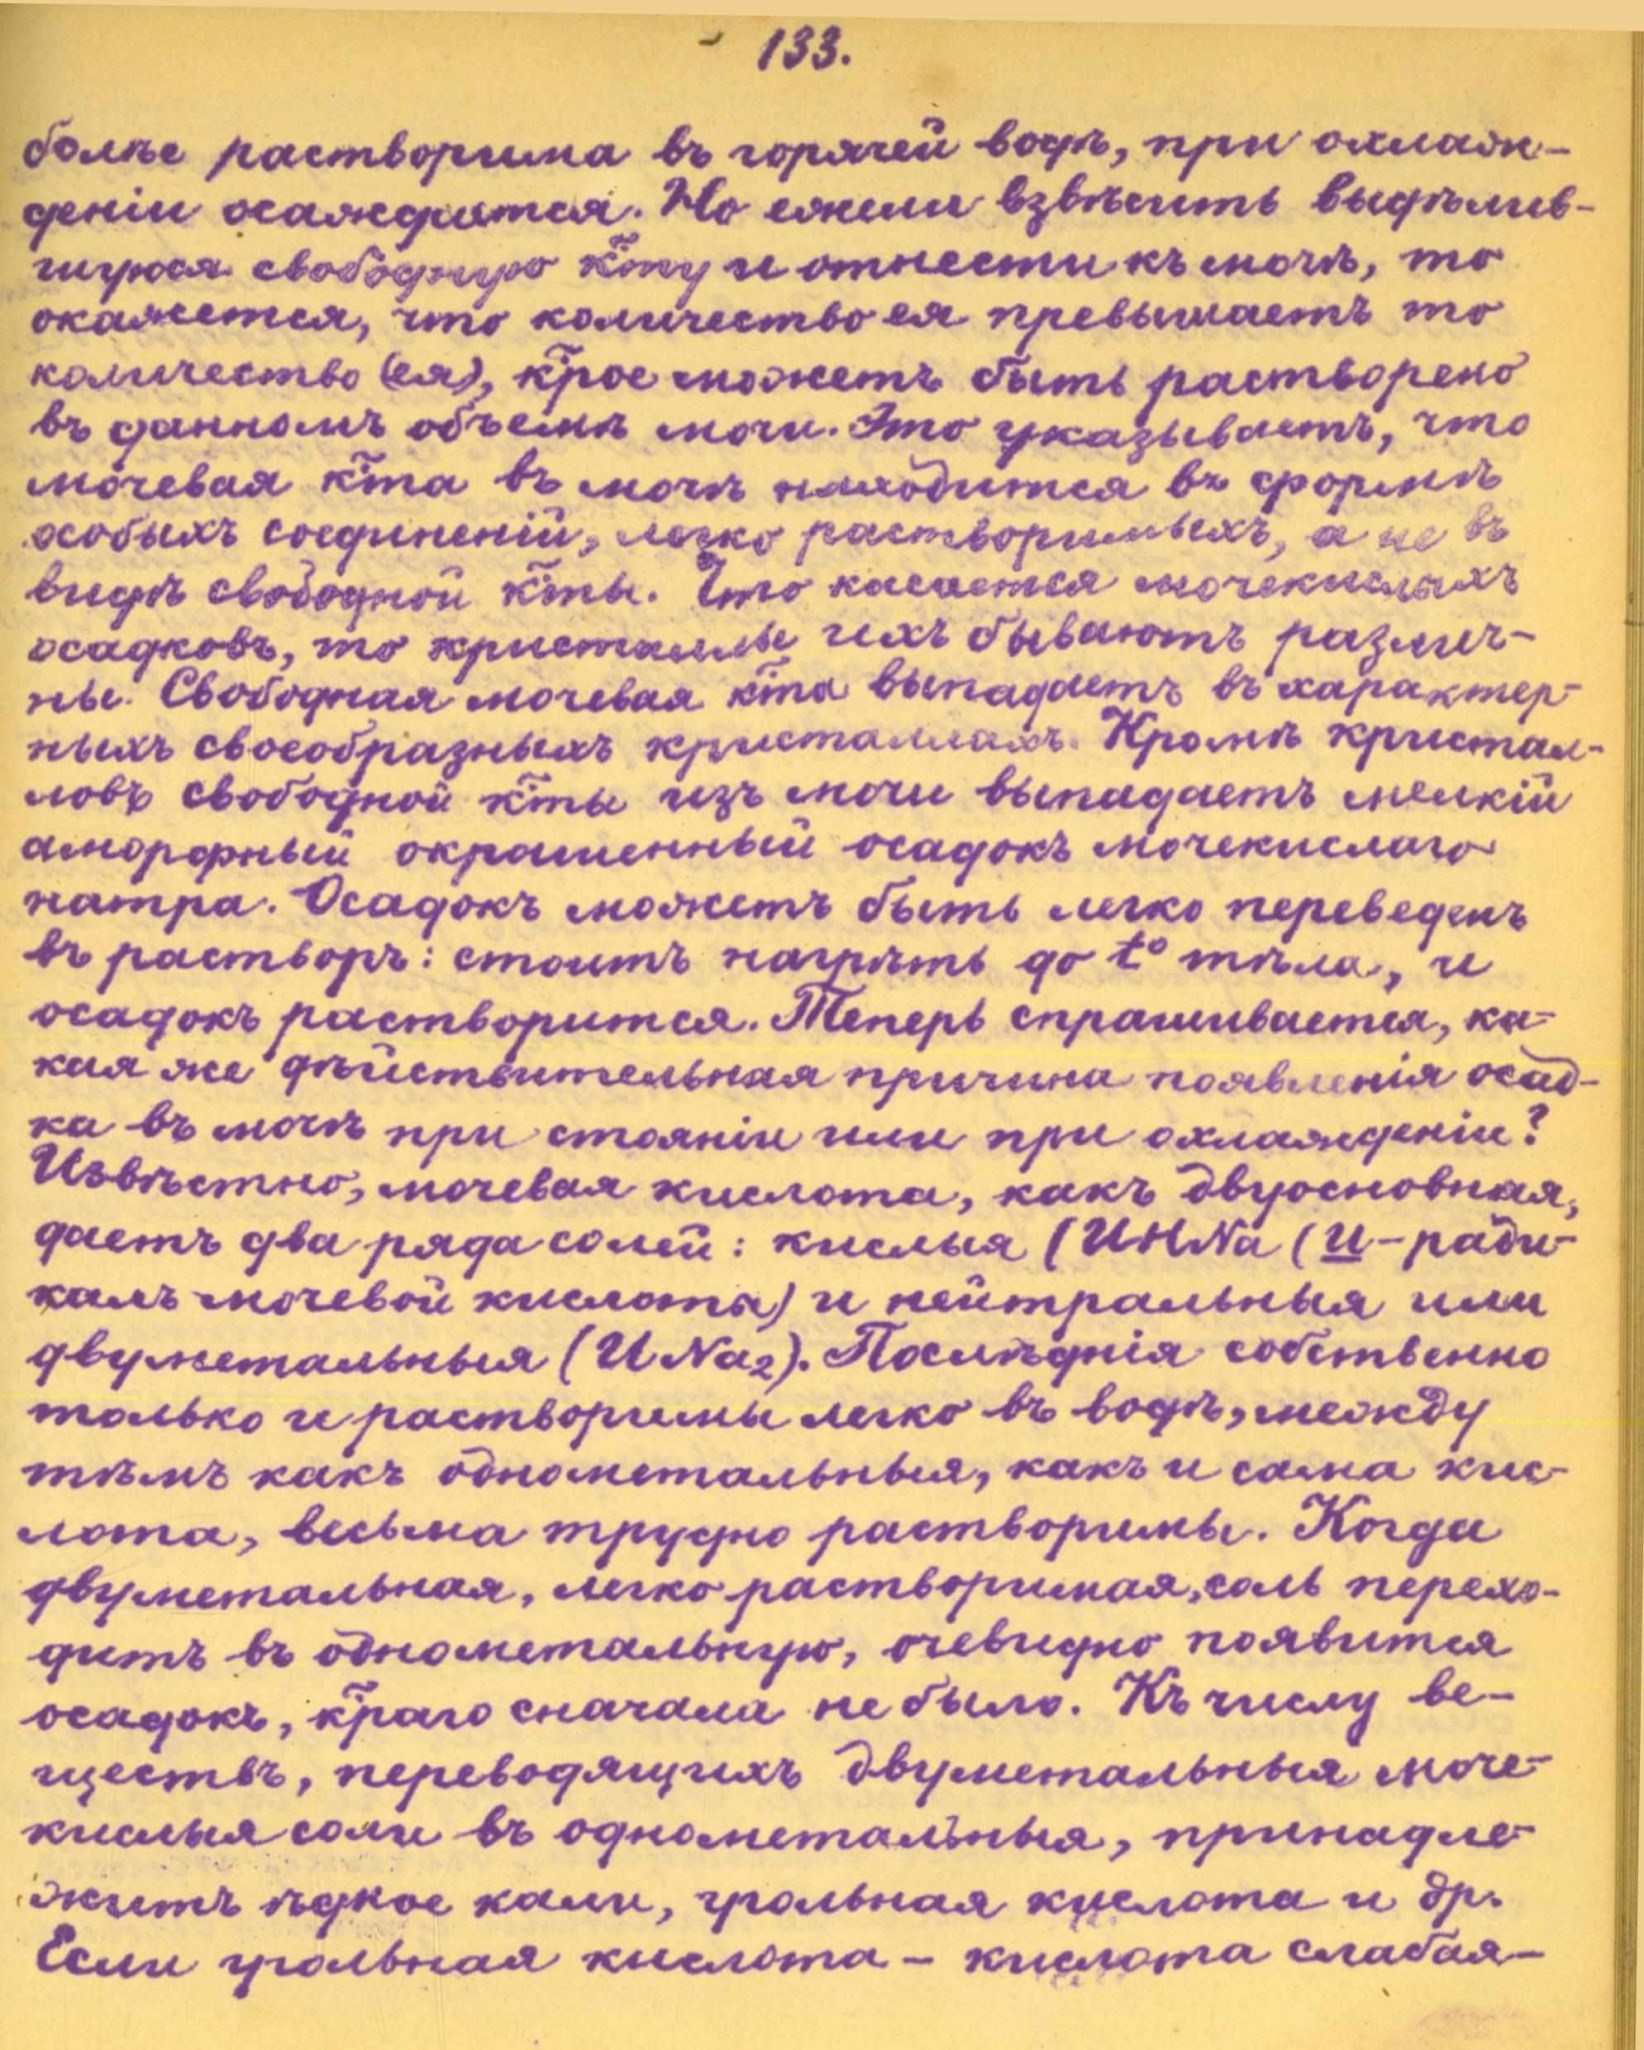 133.
болѣе растворима въ горячей водѣ, при охлаж-
деніи осаждается. Но ежели взвѣсить выдѣлив-
шуюся свободную к̃ту и отнести къ мочѣ, то
окажется, что количество ея превышаетъ то
количество (ея), к̃рое можетъ быть растворено
въ данномъ объемѣ мочи. Это указываетъ, что
мочевая к̃та въ мочѣ находится въ формѣ
особыхъ соединеній, легко растворимыхъ, а не въ
видѣ свободной к̃ты. Что касается мочекислыхъ
осадковъ, то кристаллы ихъ бываютъ различ-
ны. Свободная мочевая к̃та выпадаетъ въ характер-
ныхъ своеобразныхъ кристаллахъ. Кромѣ кристал-
ловъ свободной к̃ты изъ мочи выпадаетъ мелкій
аморфный окрашенный осадокъ мочекислаго
натра. Осадокъ можетъ быть легко переведенъ
въ растворъ: стоитъ нагрѣть до t° тѣла, и
осадокъ растворится. Теперь спрашивается, ка-
кая же дѣйствительная причина появленія осад-
ка въ мочѣ при стояніи или при охлажденіи?
Извѣстно, мочевая кислота, какъ двуосновная,
даетъ два ряда солей: кислыя (UHNa (U - ради-
калъ мочевой кислоты) и нейтральныя или
двуметальныя (UNa₂). Послѣднія собственно
только и растворимы легко въ водѣ, между
тѣмъ какъ однометальныя, какъ и сама кис-
лота, весьма трудно растворимы. Когда
двуметальная, легко растворимая, соль перехо-
дитъ въ однометальную, очевидно появится
осадокъ, к̃раго сначала не было. Къ числу ве-
ществъ, переводящихъ двуметальныя моче-
кислыя соли въ однометальныя, принадле-
житъ ѣдкое кали, угольная кислота и др.
Если угольная кислота - кислота слабая -